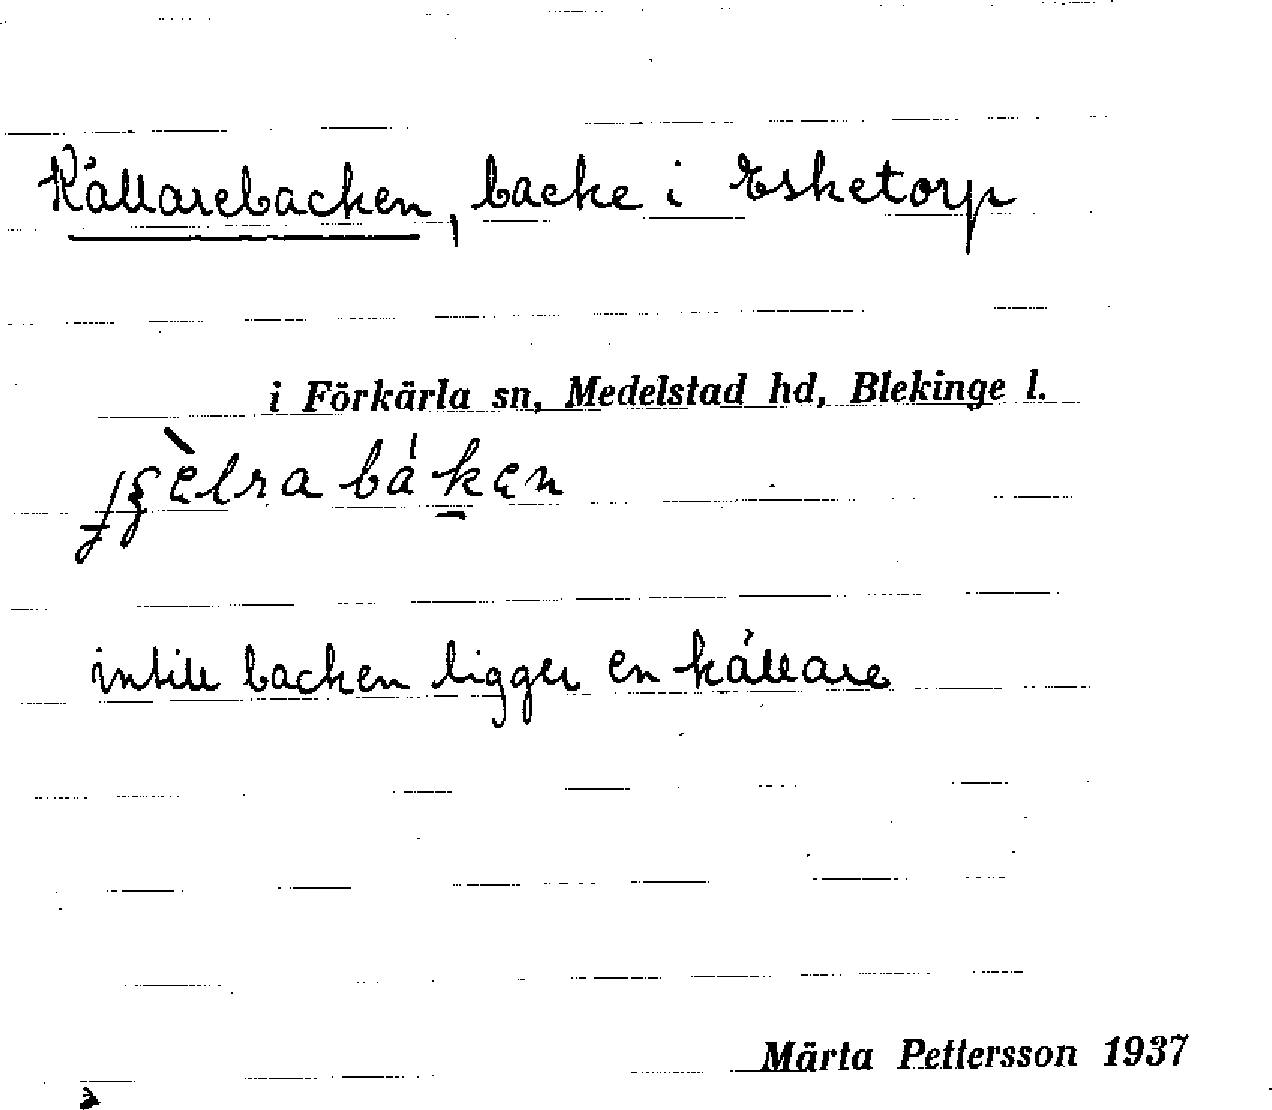 Källarebacken, backe i Esketorp
i Förkärla sn, Medelstad hd, Blekinge l.
intill backen ligger en källare
Märta Pettersson 1937